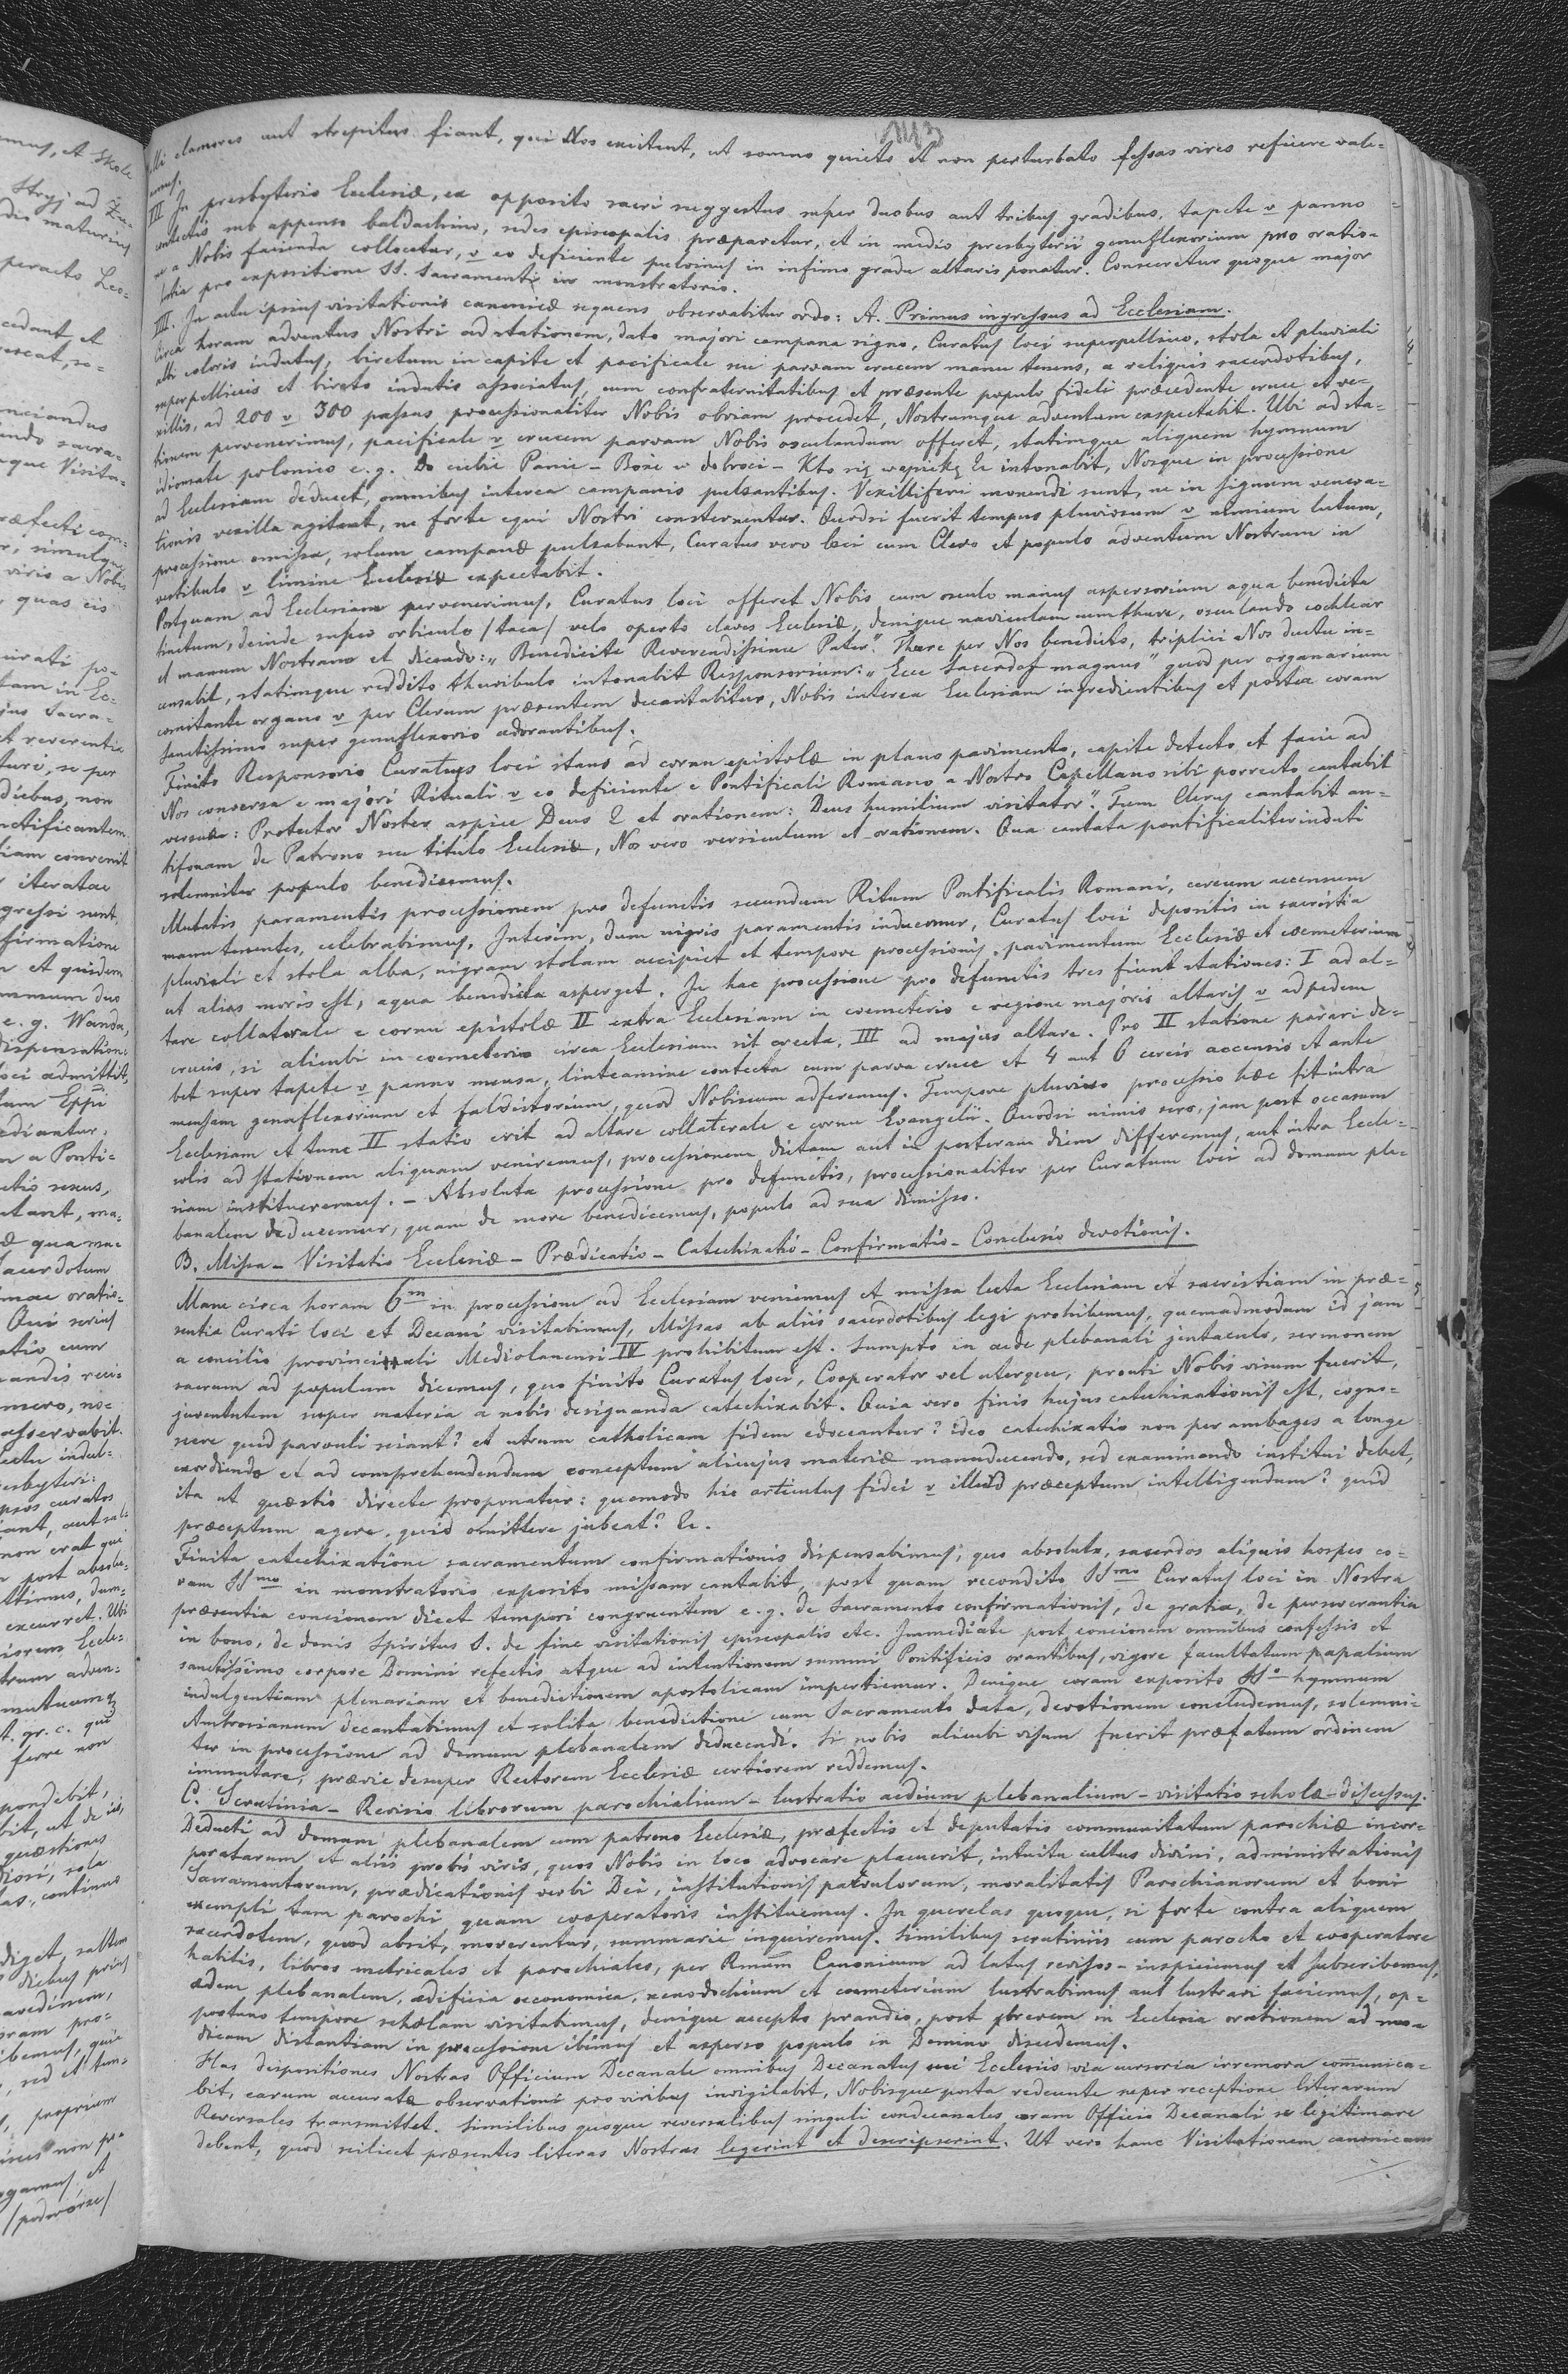 143
clamores aut strepitus fiant, qui Nos excitent, ut somno quieto et non perturbato fessas vires reficere vale-
emus.
III In presbyterio Ecclesiæ, ex opposito sacri suggestus super duobus aut tribus gradibus, tapete v panno
contectis sub appenso baldachino, sedes episcopalis præparetur, et in medio presbyterii genuflexorium pro oratio-
ne a Nobis facienda collocetur, v eo deficiente pulvinus in infimo gradu altaris ponatur. Consecretur quoque major
hostia pro expositione SS. Sacramenti in monstratorio.
IIII. In actu ipsius visitationis canonicæ sequens observabitur ordo: A. Primus ingressus ad Ecclesiam.
Circa horam adventus Nostri ad stationem, dato majori campana signo, Curatus loci superpelliceo, stola et pluviali
albi coloris indutus, biretum in capite et pacificale seu parvam crucem manu tenens, a reliquis sacerdotibus,
superpelliceis et bireto indutis associatus, cum confraternitatibus et præsente populo fideli præcedente cruce et ve-
xillis, ad 200 v 300 passus processionaliter Nobis obviam procedet, Nostrumque adventum exspectabit. Ubi ad sta-
tionem pervenerimus, pacificale v crucem parvam Nobis osculandum offeret, statimque aliquem hymnum
idiomate polonico e. g. Do ciebie Panie – Boże w dobroci – Kto się w opiekę &c intonabit, Nosque in processione
ad Ecclesiam deducet, omnibus interea campanis pulsantibus. Vexilliferi monendi sunt, ne in signum venera-
tionis vexilla agitent, ne forte equi Nostri consternentur. Quodsi fuerit tempus pluviosum v nimium lutum,
processione omissa, solum campanæ pulsabunt, Curatus vero loci cum Clero et populo adventum Nostrum in
vestibulo v limine Ecclesiæ expectabit.
Postquam ad Ecclesiam pervenerimus, Curatus loci offeret Nobis cum osculo manus aspersorium aqua benedicta
tinctum, deinde super orbiculo /taca/ velo operto claves Ecclesiæ, denique naviculam cum thure, osculando cochlear
et manum Nostram et dicendo: „Benedicite Reverendissime Pater". Thure per Nos benedicto, triplici Nos ductu in-
censabit, statimque reddito thuribulo intonabit Responsorium: „Ecce Sacerdos magnus" quod per organarium
comitante organo v per Clerum præsentem decantabitur, Nobis interea Ecclesiam ingredientibus et postea coram
Sanctissimo super genuflexorio adorantibus.
Finito Responsorio Curatus loci stans ad cornu epistolæ in plano pavimento, capite detecto et facie ad
Nos conversa e majori Rituali v eo deficiente e Pontificali Romano a Nostro Capellano sibi porrecto cantabit
versum: Protector Noster aspice Deus &c et orationem: Deus humilium visitator". Tum Clerus cantabit an-
tifonam de Patrono seu titulo Ecclesiæ, Nos vero versiculum et orationem. Qua cantata pontificaliter induti
solemniter populo benedicemus.
Mutatis paramentis processionem pro defunctis secundum Ritum Pontificalis Romani, cereum accensum
manu tenentes, celebrabimus. Interim, dum nigris paramentis induemur, Curatus loci depositis in sacristia
pluviali et stola alba, nigram stolam accipiet et tempore processionis, pavimentum Ecclesiæ et coemeterium
ut alias moris est, aqua benedicta asperget. In hac processione pro defunctis tres fiunt stationes: I ad al-
tare collaterale e cornu epistolæ II extra Ecclesiam in coemeterio e regione majoris altaris v ad pedem
crucis, si alicubi in coemeterio circa Ecclesiam sit erecta, III ad majus altare. Pro II statione parari de-
bet super tapete v panno mensa, linteamine contecta cum parva cruce et 4 aut 6 cereis accensis et ante
mensam genuflexorium et faldistorium, quod Nobiscum adferemus. Tempore pluvioso processio hæc fit intra
Ecclesiam et tunc II statio erit ad altare collaterale e cornu Evangelii. Quodsi nimis sero, jam post occasum
solis ad stationem aliquam veniremus, processionem dictam aut in posteram diem differemus, aut intra Eccle-
siam instituemus. – Absoluta processione pro defunctis, processionaliter per Curatum loci ad domum ple-
banalem deducemur, quam de more benedicemus, populo ad sua dimisso.
B. Missa – Visitatio Ecclesiæ – Prædicatio – Catechizatio – Confirmatio – Conclusio devotionis.
Mane circa horam 6m in processione ad Ecclesiam veniemus et missa lecta Ecclesiam et sacristiam in præ-
sentia Curati loci et Decani visitabimus, Missas ab aliis sacerdotibus legi prohibemus, quemadmodum id jam
a concilio provinciali Mediolanensi IV prohibitum est. Sumpto in aede plebanali jentaculo, sermonem
sacrum ad populum dicemus, quo finito Curatus loci, Cooperator vel uterque, prouti Nobis visum fuerit,
juventutem super materia a nobis designanda catechizabit. Quia vero finis hujus catechizationis est, cogno-
scere quid parvuli sciant? et utrum catholicam fidem edoceantur? ideo catechizatio non per ambages a longe
exordiendo et ad comprehendendum conceptum alicujus materiæ manuducendo, sed examinando institui debet,
ita ut quæstio directe proponatur: quomodo hic articulus fidei v illud præceptum intelligendum? quid
præceptum agere, quid omittere jubeat? &c.
Finita catechizatione sacramentum confirmationis dispensabimus, quo absoluto, sacerdos aliquis hospes co-
ram SSmo in monstratorio exposito missam cantabit, post quam recondito SSmo Curatus loci in Nostra
præsentia concionem dicet tempori congruentem e. g. de Sacramento confirmationis, de gratia, de perseverantia
in bono, de donis Spiritus S. de fine visitationis episcopalis etc. Immediate post concionem omnibus confessis et
sanctissimo corpore Domini refectis atque ad intentionem summi Pontificis orantibus, vigore facultatum papalium
indulgentiam plenariam et benedictionem apostolicam impertiemur. Denique coram exposito SSmo hymnum
Ambrosianum decantabimus et solita benedictione cum Sacramento data, devotionem concludemus, solemni-
ter in processione ad domum plebanalem deducendi. Si nobis alicubi visum fuerit præfatum ordinem
immutare, prævie desuper Rectorem Ecclesiæ certiorem reddemus.
C. Scrutinia – Revisio librorum parochialium – lustratio aedium plebanalium – visitatio scholæ – discessus.
Deducti ad domum plebanalem cum patrono Ecclesiæ, præfectis et deputatis communitatum parochiæ incor-
poratarum et aliis probis viris, quos Nobis in loco advocare placuerit, intuitu cultus divini, administrationis
Sacramentorum, prædicationis verbi Dei, institutionis parvulorum, moralitatis Parochianorum et boni
exempli tam parochi, quam cooperatoris instituemus. In querelas quoque, si forte contra aliquem
sacerdotem, quod absit, moverentur, summarie inquiremus. Similibus scrutiniis cum parocho et cooperatore
habitis, libros metricales et parochiales, per Rmum Canonicum ad latus revisos – inspiciemus et subscribemus,
ædem plebanalem, ædificia oeconomica, xenodochium et coemeterium lustrabimus aut lustrari faciemus, op-
portuno tempore scholam visitabimus, denique accepto prandio, post brevem in Ecclesia orationem ad mo-
dicam distantiam in processione ibimus et asperso populo in Domino discedemus.
Has dispositiones Nostras Officium Decanale omnibus Decanatus sui Ecclesiis via cursoria irremora communica-
bit, earum accuratæ observationi pro viribus invigilabit, Nobisque posta redeunte super receptione literarum
Reversales transmittet. Similibus quoque reversalibus singuli condecanales coram Officio Decanali se legitimare
debent, quod scilicet præsentes literas Nostras legerint et descripserint. Ut vero hanc Visitationem canonicam